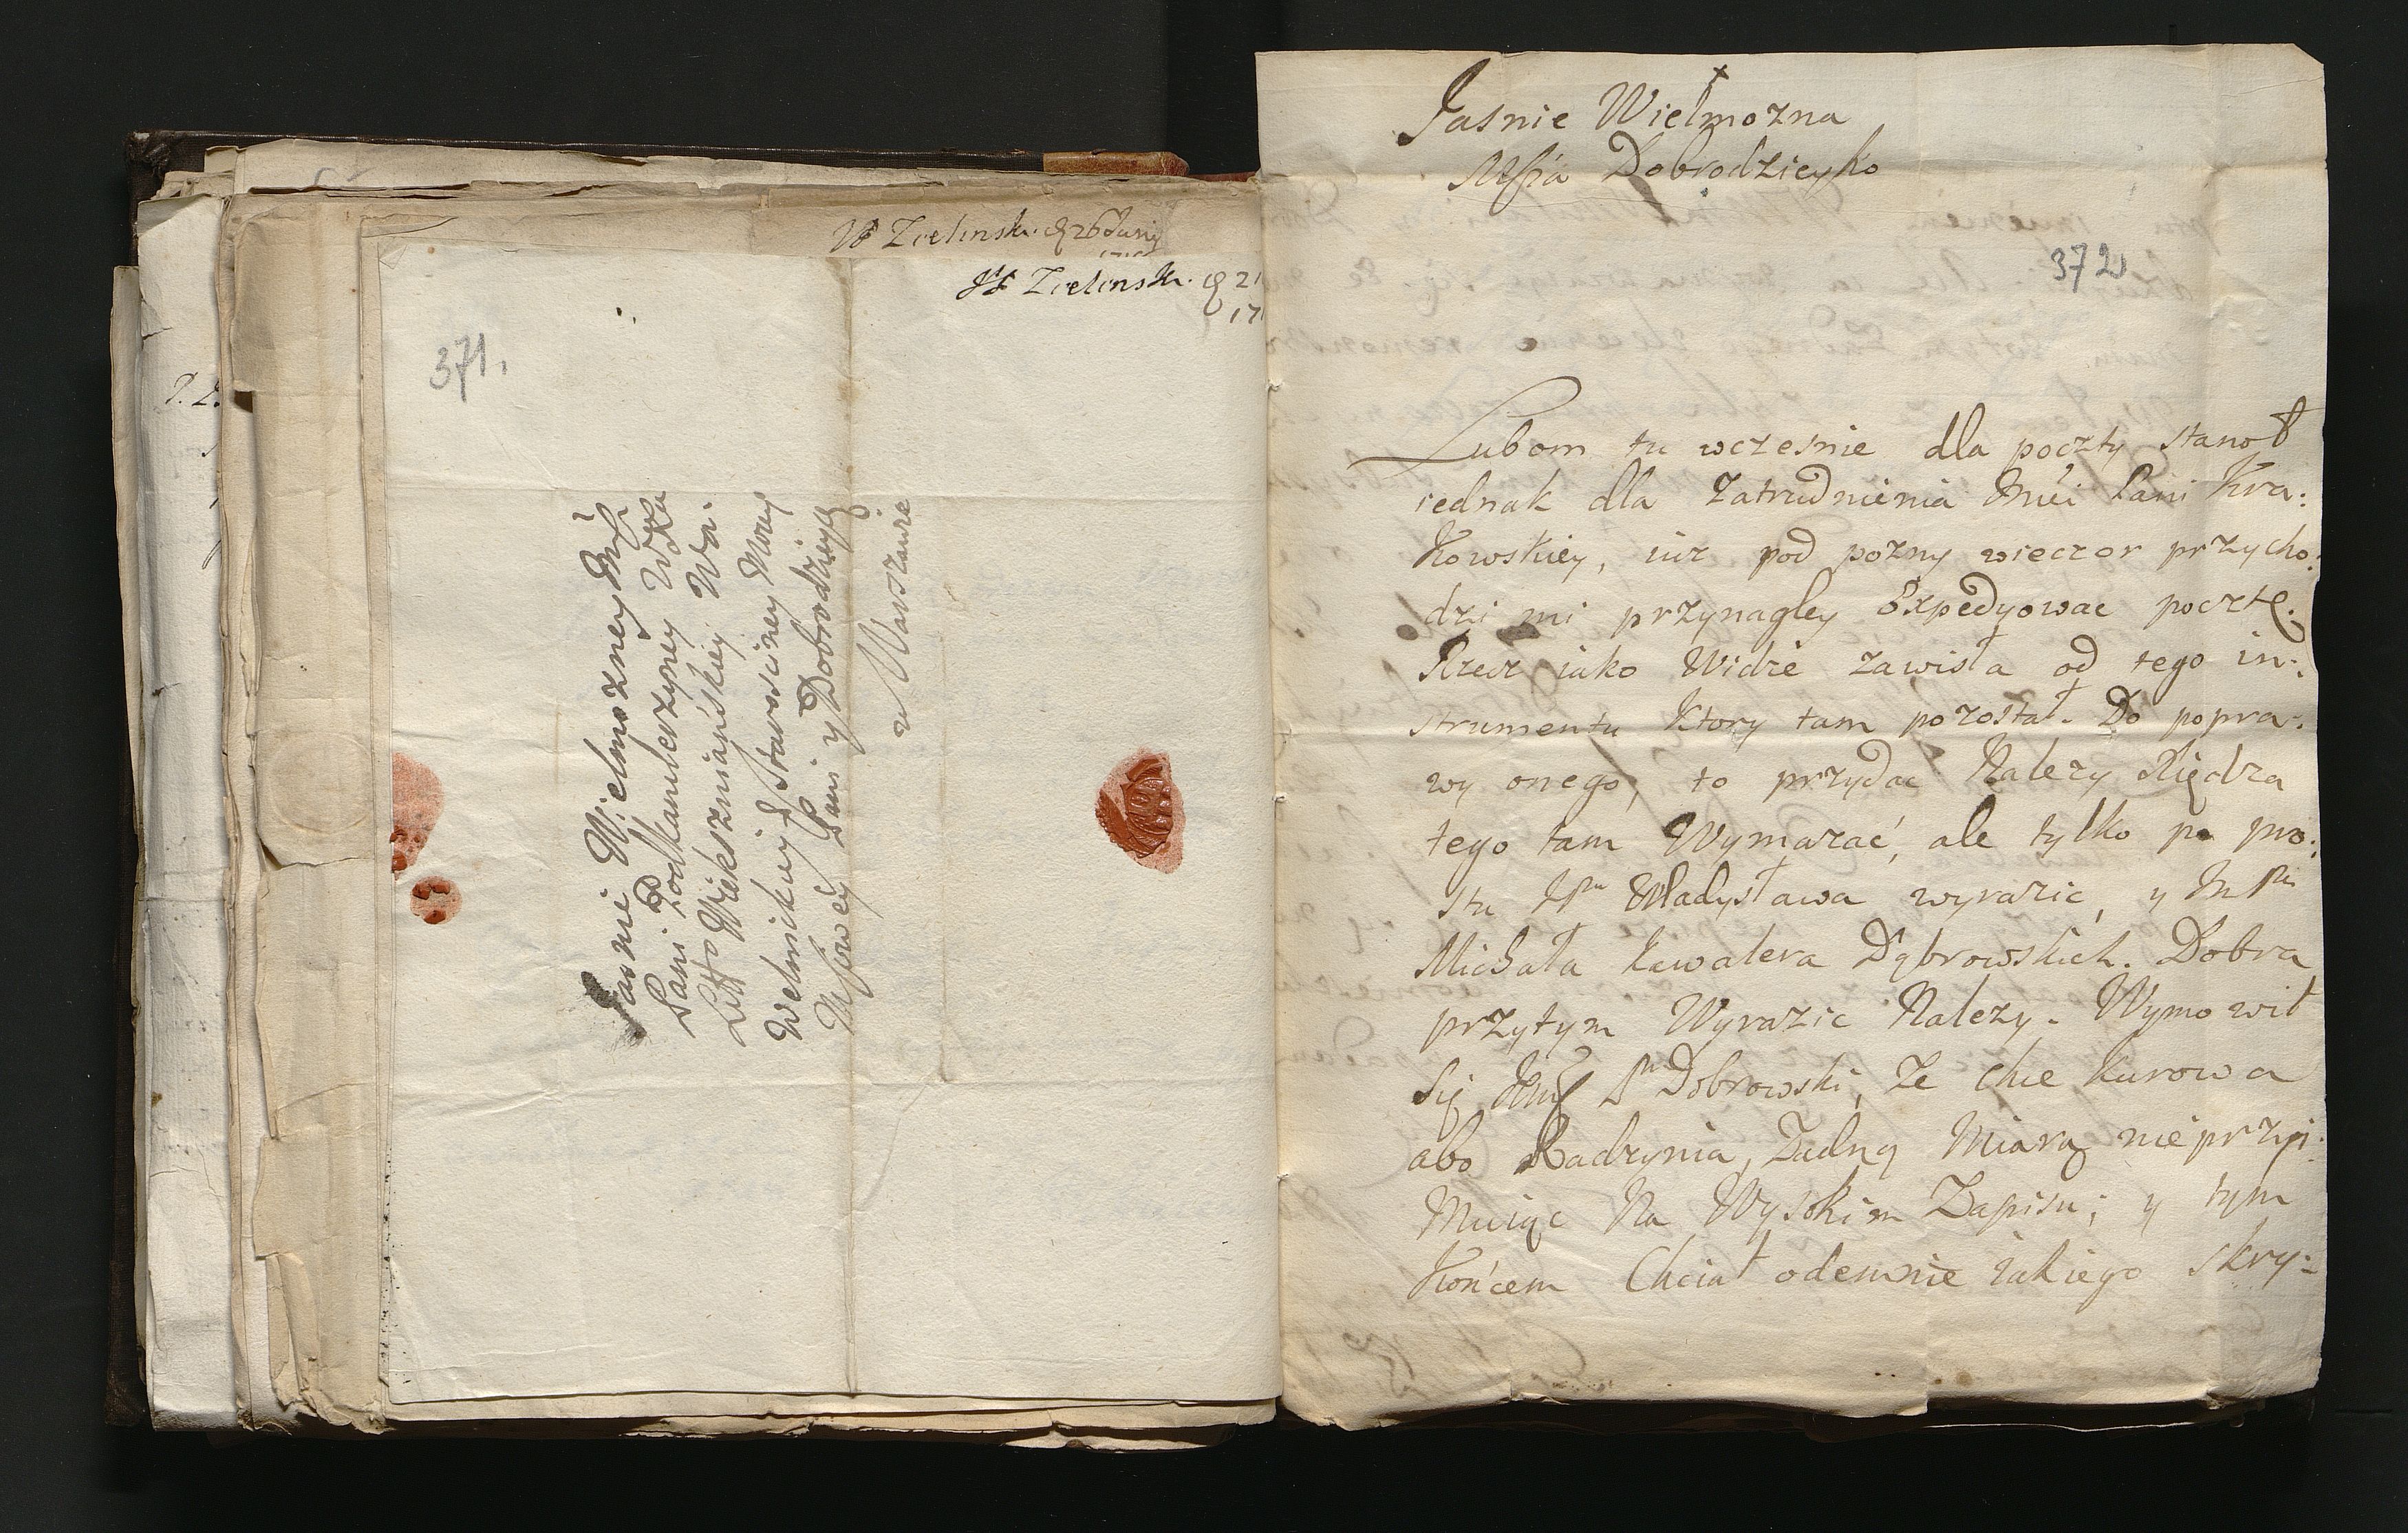 JP Zielinski d 26 Junij
JP Zielinski d 21
17
371.
Jasnie Wielmozney Jmsci
Pani Podkanclerzyney WXa
Litto Wiekszniańskiey Wa:
Wielonskiey Starościney Moiey
Msciwey Pani y Dobrodzieyce
w Warszawie
Jasnie Wielmozna
Mscia Dobrodzieyko
372
Lubom tu wczesnie dla poczty stanoł
iednak dla zatrudnienia Jmći Pani Kra:
kowskiey, iuz pod pozny wieczor przycho:
dzi mi przynagley Expedyowac pocztę.
Rzecz iako Widze zawisła od tego in:
strumentu Ktory tam pozostał. Do popra:
wy onego, to przydac Nalezy Xiędza
tego tam Wymazać, ale tylko po pro:
stu JPna Władysława wyrazic, y JmPna
Michała Kawalera Dąbrowskich. Dobra
przytym Wyrazic Nalezy. Wymowił
się Jmć Pn Dobrowski, ze chce Kurowa
abo Radzynia, Zadną Miarą nie przyi:
Muiąc Na Wysokim Zapisu; y tym
Końcem Chciał odemnie iakiego skry: